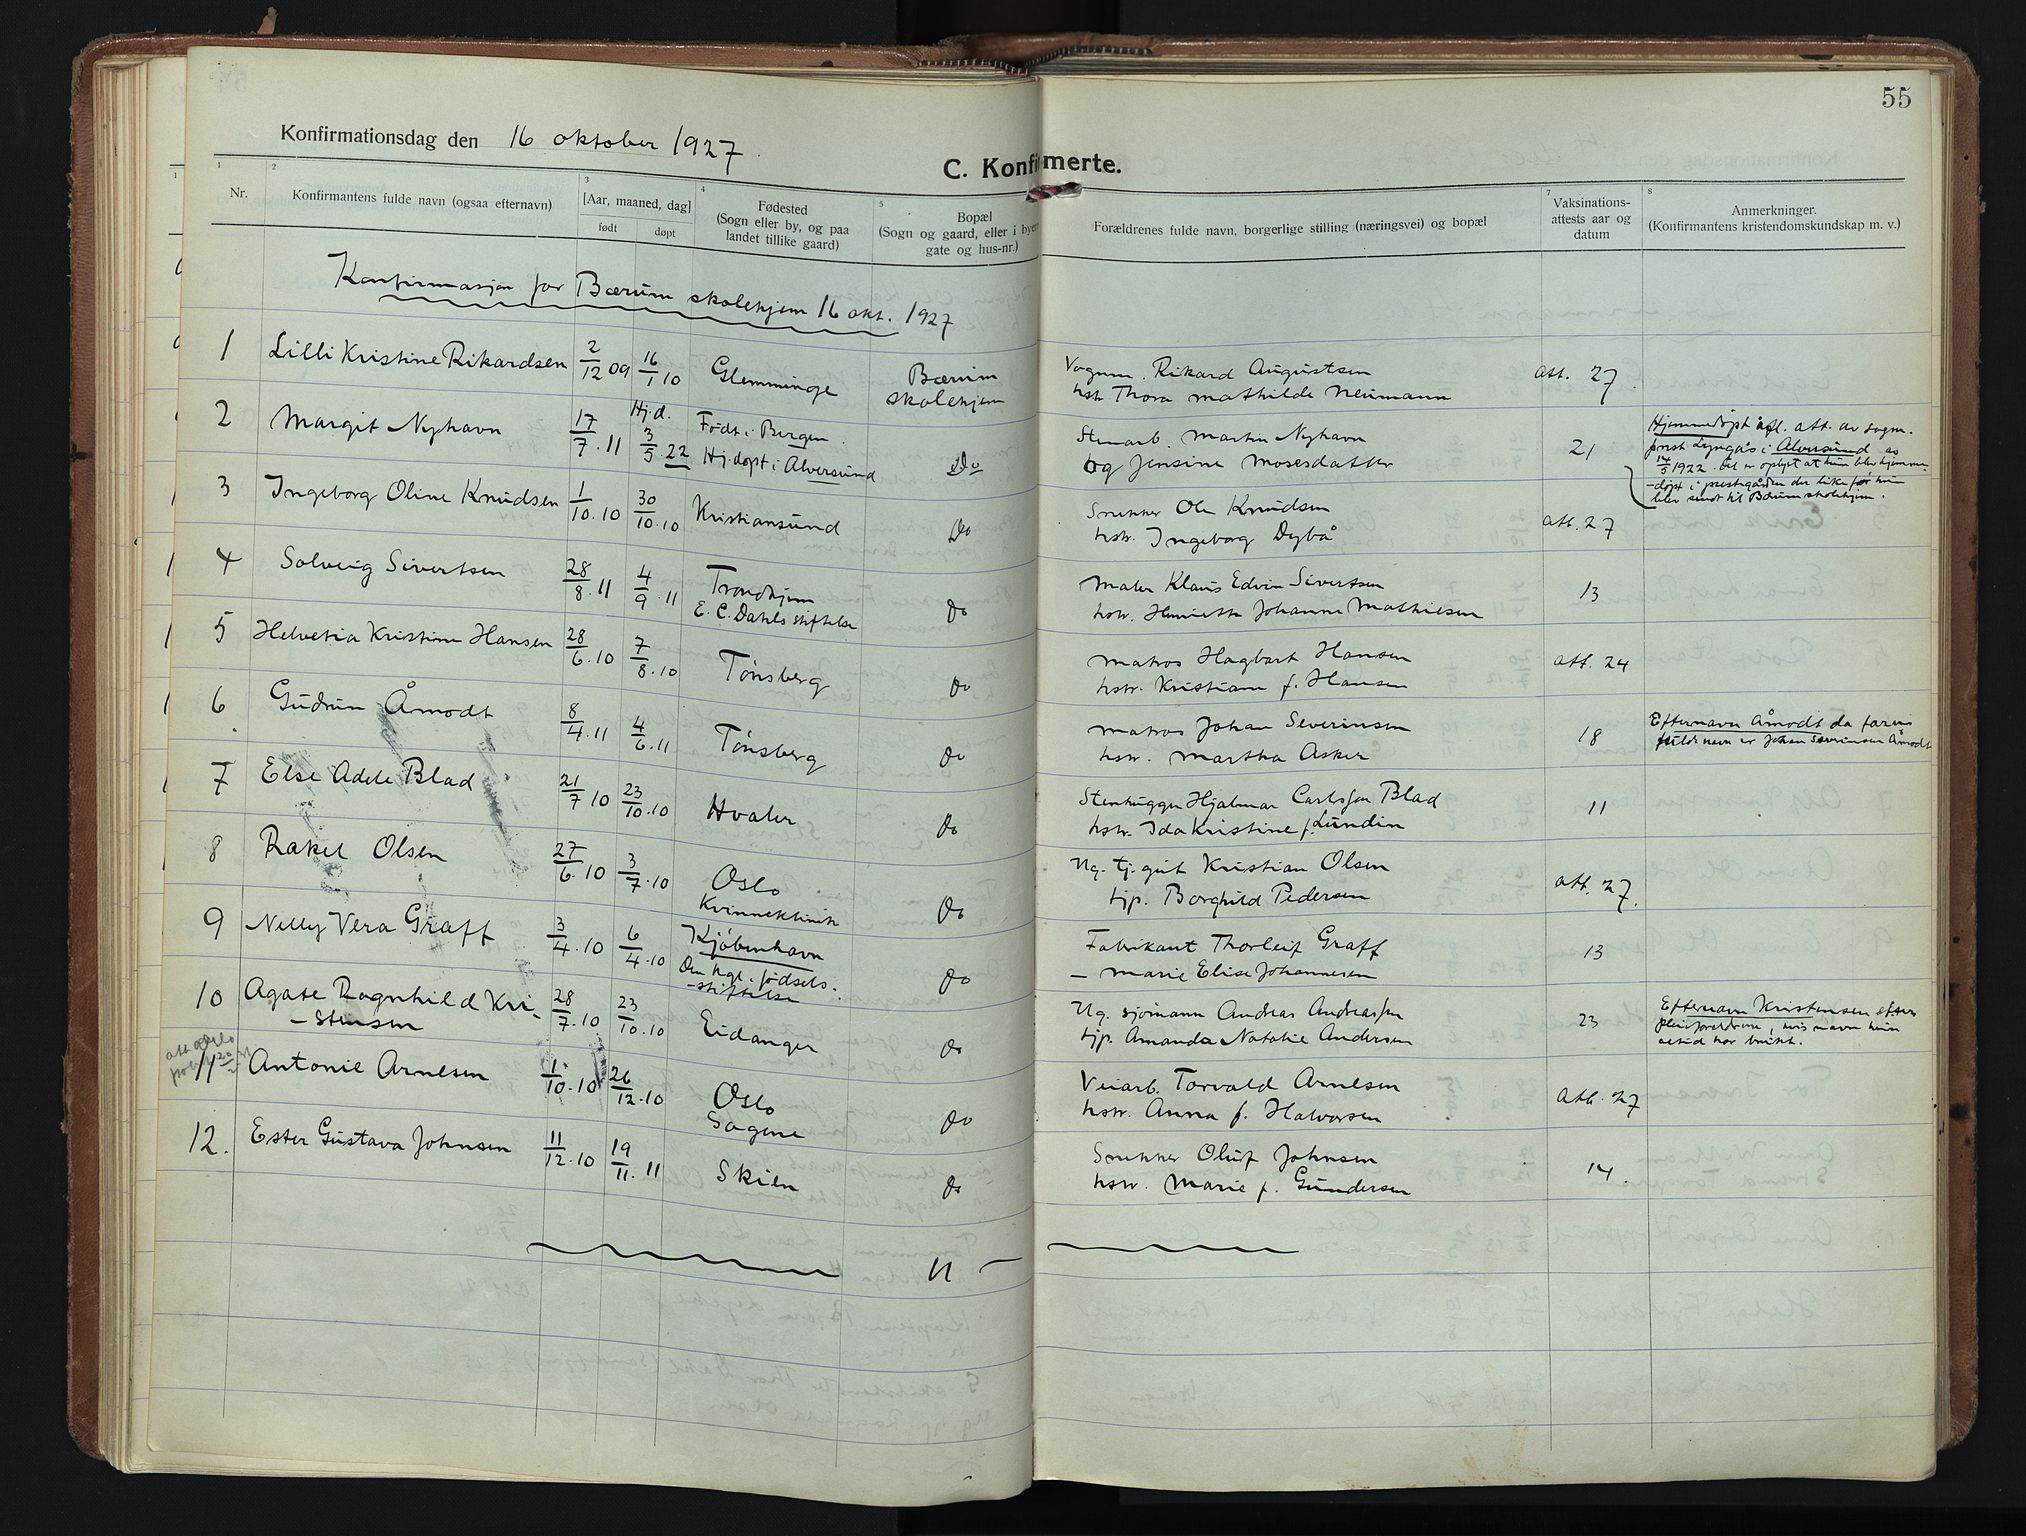 55
Konfirmationsdag den 16 oktober 1927
C. Konfirmerte.
1 2 3 4 5 7 8
Nr.
Konfirmantens fulde navn (ogsaa efternavn)
[Aar, maaned, dag]
født døpt
Fødested
(Sogn eller by, og paa
landet tillike gaard)
Bopæl
(Sogn og gaard, eller i byen
gate og hus-nr.)
Forældrenes fulde navn, borgerlige stilling (næringsvei) og bopæl
Vaksinations-
attests aar og
datum
Anmerkninger.
(Konfirmantens kristendomskundskap m. v.)
Konfirmasjon for Bærum skolehjem 16 okt. 1927
1 Lilli Kristine Rikardsen 2/12 09 16/1 10 Glemminge Bærum skolehjem
Vognm. Rikard Augustsen
hstr Thora Mathilde Neumann
att. 27.
2 Margit Nyhavn 17/7. 11 Hj.d. 3/5. 22 Født i Bergen.
Hj. døpt i Alversund Do
Stenarb. Martin Nyhavn
og Jensine Mosesdatter
21
Hjemmedøpt ifl. att. av sogn.
prest Lyngås i Alversund av
14/5 1922. Det er oplyst at hun blev hjemme-
-døpt i prestegården der like før hun
blev sendt til Bærum skolehjem.
3 Ingeborg Oline Knudsen 1/10. 10 30/10. 10 Kristiansund Do
Snekker Ole Knudsen
hstr. Ingeborg Dybå
att. 27
4 Solveig Sivertsen 28/8. 11 4/9. 11 Trondhjem
E. C. Dahls stiftelse Do
Maler Klaus Edvin Sivertsen
hstr. Henriette Johanne Mathiesen
13
5 Helvetia Kristine Hansen 28/6. 10 7/8. 10 Tønsberg Do
Matros Hagbart Hansen
hstr. Kristiane f. Hansen
att. 24
6 Gudrun Åmodt 8/4. 11 4/6. 11 Tønsberg Do
Matros Johan Severinsen
hstr. Martha Asker
18
Efternavn Åmodt da farens
fulde navn er Johan Severinsen Åmodt
7 Else Adele Blad 21/7 10 23/10. 10 Hvaler Do
Stenhugger Hjalmar Carlsson Blad
hstr. Ida Kristine f. Lundin
11
8 Rakel Olsen 27/6. 10 3/7. 10 Oslo
Kvinneklinik Do
Ug. tj.gut Kristian Olsen
tjp. Borghild Pedersen
att. 27.
9 Nelly Vera Graff 3/4. 10 6/4. 10 Kjøbenhavn
Den kgl. fødsels-
-stiftelse Do
Fabrikant Thorleif Graff
— Marie Elise Johannesen
13
10 Agate Ragnhild Kri-
-stensen 28/7. 10 23/10. 10 Eidanger Do
Ug. sjømann Andreas Andreassen
tjp. Amanda Natalie Andersen
23
Efternavn Kristensen efter
pleieforeldrene, hvis navn hun
altid har brukt.
11 Antonie Arnesen 1/10. 10 26/12. 10 Oslo
Sagene Do
Veiarb. Torvald Arnesen
hstr. Anna f. Halvorsen
att. 27
12. Ester Gustava Johnsen 11/12. 10 19/11. 11 Skien Do
Snekker Oluf Johnsen
hstr. Marie f. Gundersen
14.